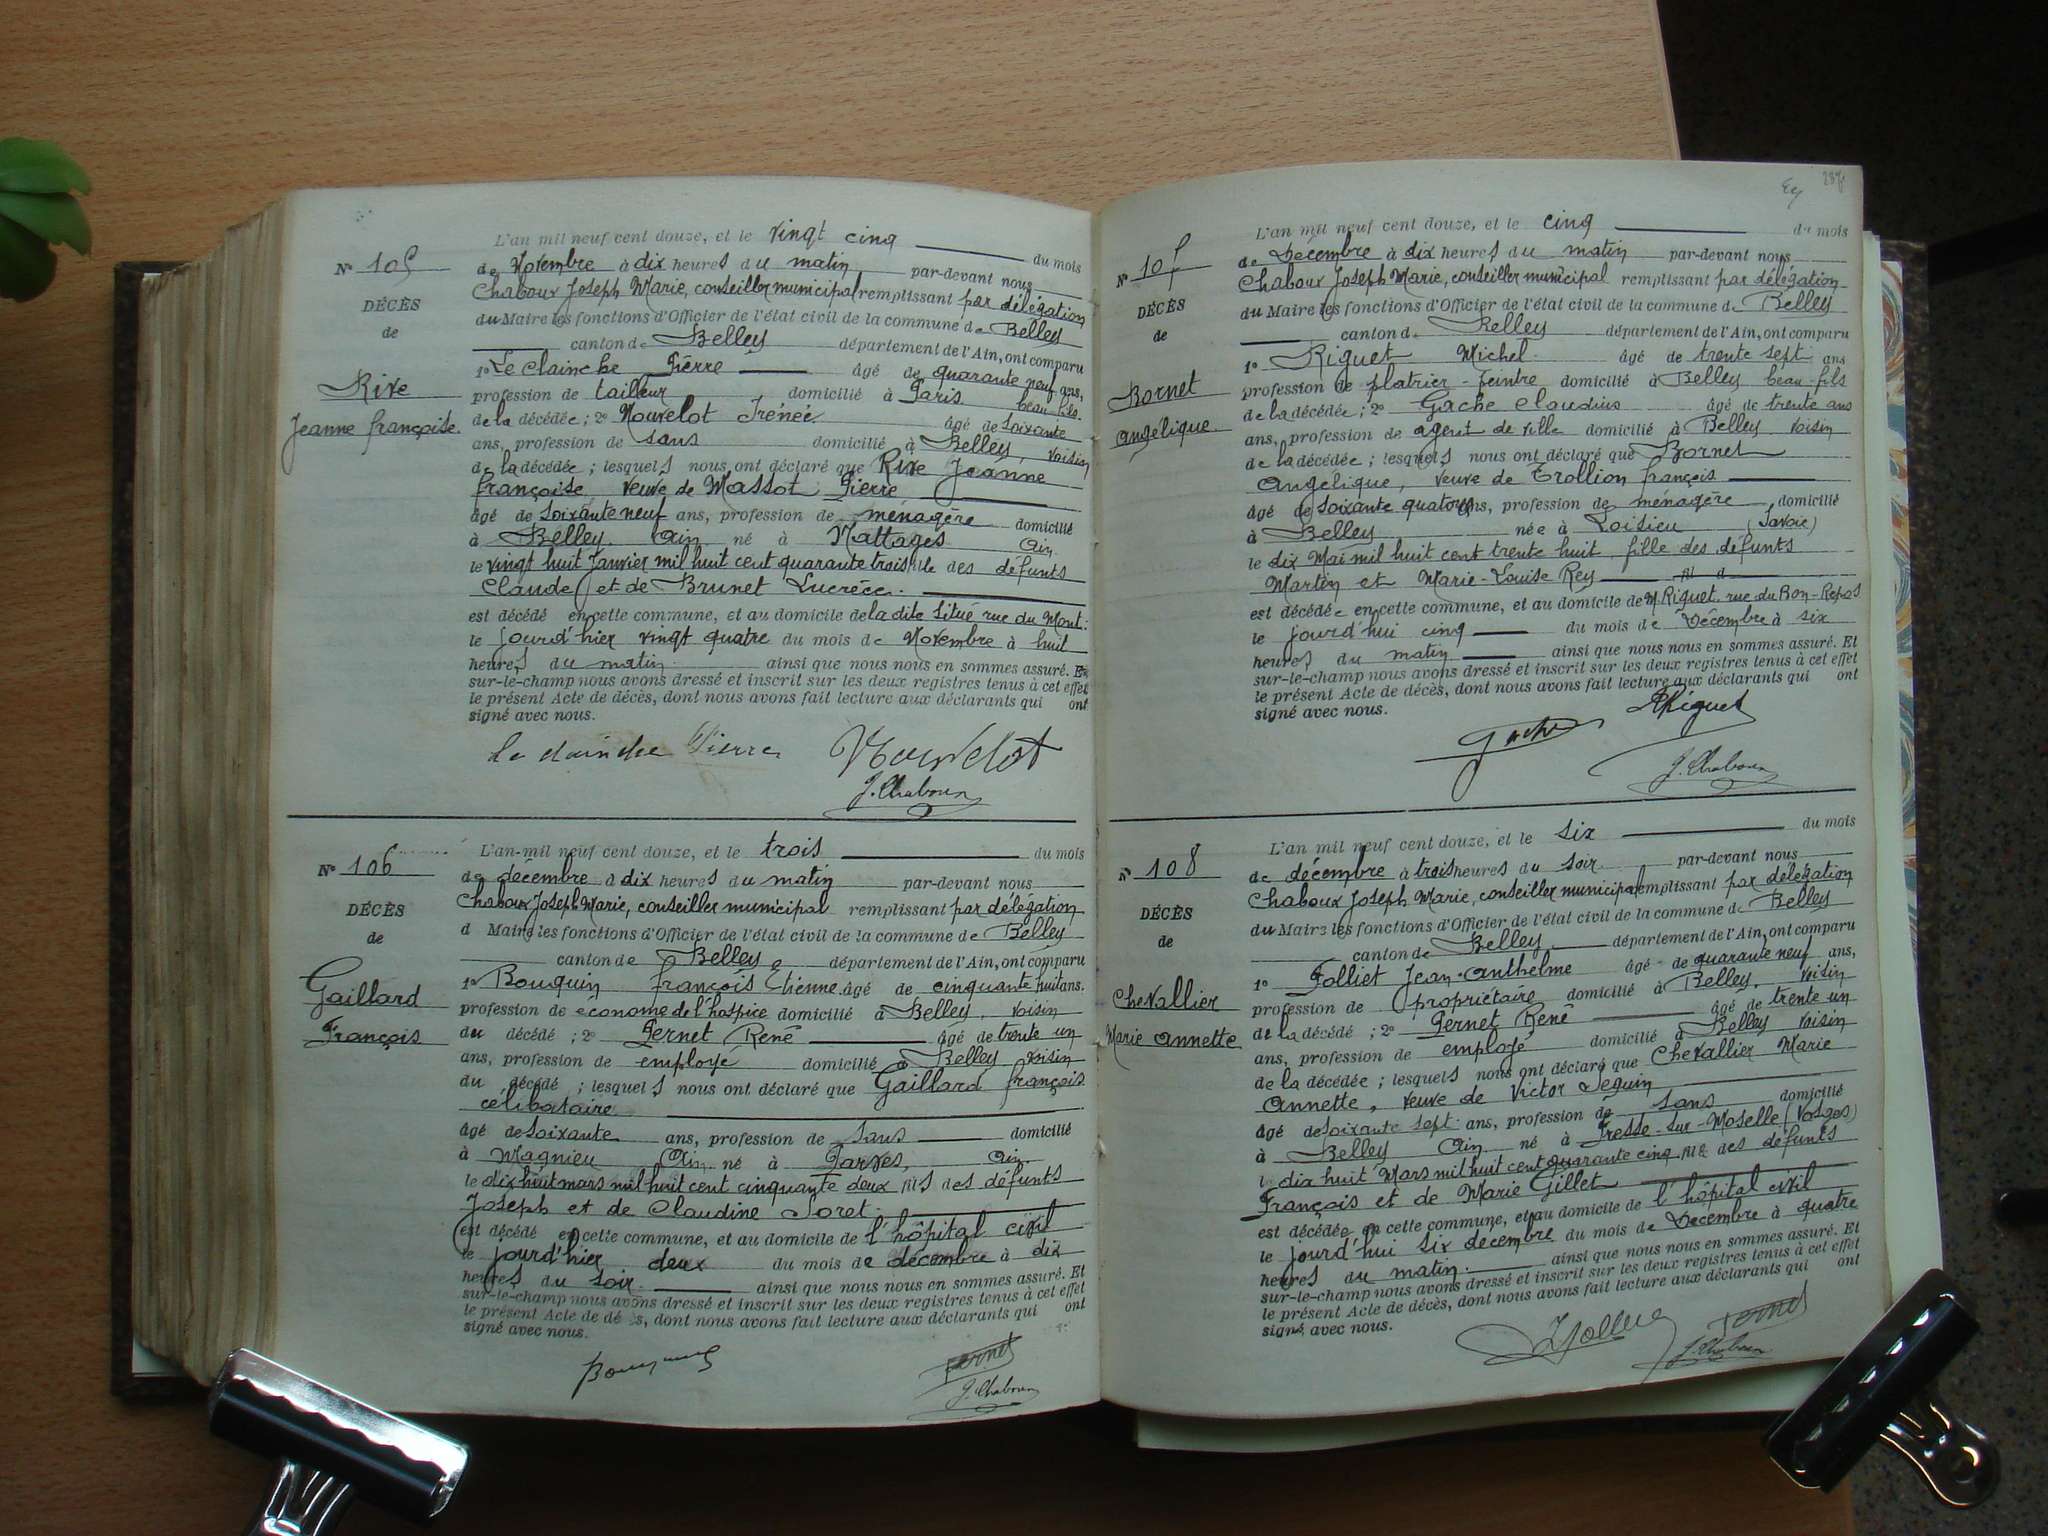 L'an mil neuf cent douze, et le vingt cinq du mois
Nº 105
de Novembre à dix heures du matin par-devant nous
Chaboux Joseph Marie, conseiller municipal remplissant par délégation
DÉCÈS
du Maire les fonctions d'Officier de l'état civil de la commune de Belley
de
canton de Belley département de l'Ain, ont comparu
1º Le Clainche Pierre âgé de quarante neuf ans,
Rive
profession de tailleur domicilié à Paris beau-fils
Jeanne françoise.
de la décédée ; 2º Nouvelot Irénée âgé de soixante
ans, profession de sans domicilié à Belley, voisin
de la décédée ; lesquels nous ont déclaré que Rive Jeanne
françoise, veuve de Massot Pierre
âgé de soixante neuf ans, profession de ménagère domicilié
à Belley Ain né à Nattages Ain
le vingt huit Janvier mil huit cent quarante trois fille des défunts
Claude et de Brunet Lucrèce.
est décédé en cette commune, et au domicile de la dite situé rue du Mont:
le jourd'hier vingt quatre du mois de Novembre à huit
heures du matin ainsi que nous nous en sommes assuré. Et
sur-le-champ nous avons dressé et inscrit sur les deux registres tenus à cet effet
le présent Acte de décès, dont nous avons fait lecture aux déclarants qui ont
signé avec nous.
Le clainche Pierre Nouvelot
J. Chaboux
L'an mil neuf cent douze, et le trois du mois
Nº 106
de décembre à dix heures du matin par-devant nous
Chaboux Joseph Marie, conseiller municipal remplissant par délégation
DÉCÈS
d Maire les fonctions d'Officier de l'état civil de la commune de Belley
de
canton de Belley département de l'Ain, ont comparu
Gaillard
1º Bouquin françois Etienne âgé de cinquante huit ans.
profession de econome de l'hospice domicilié à Belley, voisin
François
du décédé ; 2º Pernet René âgé de trente un
ans, profession de employé domicilié à Belley voisin
du décédé ; lesquels nous ont déclaré que Gaillard françois
célibataire
âgé de soixante ans, profession de sans domicilié
à Magnieu Ain né à Parves, Ain
le dix huit mars mil huit cent cinquante deux fils des défunts
Joseph et de Claudine Soret.
est décédé en cette commune, et au domicile de l'hôpital civil
le jourd'hier deux du mois de décembre à dix
heures du soir. ainsi que nous nous en sommes assuré. Et
sur-le-champ nous avons dressé et inscrit sur les deux registres tenus à cet effet
le présent Acte de décès, dont nous avons fait lecture aux déclarants qui ont
signé avec nous.
Bouquin Pernet
J. Chaboux
L'an mil neuf cent douze, et le cinq du mois
Nº 107
de Décembre à dix heures du matin par-devant nous
Chaboux Joseph Marie, conseiller municipal remplissant par délégation
DÉCÈS
du Maire les fonctions d'Officier de l'état civil de la commune de Belley
de
canton de Belley département de l'Ain, ont comparu
1º Riguet Michel. âgé de trente sept ans
Bornet
profession de platrier-peintre domicilié à Belley beau-fils
de la décédée ; 2º Gache Claudius âgé de trente ans
Angélique
ans, profession de agent de ville domicilié à Belley voisin
de la décédée ; lesquels nous ont déclaré que Bornet
Angélique, veuve de Trollion françois
âgé de soixante quatorze ans, profession de ménagère domicilié
à Belley née à Loisieu (Savoie)
le dix Mai mil huit cent trente huit, fille des défunts
Martin et Marie-Louise Rey
est décédée en cette commune, et au domicile de M. Riguet rue du Bon-Repos
le jourd'hui cinq du mois de Décembre à six
heures du matin ainsi que nous nous en sommes assuré. Et
sur-le-champ nous avons dressé et inscrit sur les deux registres tenus à cet effet
le présent Acte de décès, dont nous avons fait lecture aux déclarants qui ont
signé avec nous.
Gache Riguet
J. Chaboux
L'an mil neuf cent douze, et le six du mois
Nº 108
de décembre à trois heures du soir par-devant nous
Chaboux Joseph Marie, conseiller municipal remplissant par délégation
DÉCÈS
du Maire les fonctions d'Officier de l'état civil de la commune de Belley
de
canton de Belley département de l'Ain, ont comparu
1º Folliet Jean-Anthelme âgé de quarante neuf ans,
Chevallier
profession de propriétaire domicilié à Belley, voisin
Marie Annette
de la décédée ; 2º Pernet René âgé de trente un
ans, profession de employé domicilié à Belley voisin
de la décédée ; lesquels nous ont déclaré que Chevallier Marie
Annette, veuve de Victor Seguin
âgé de soixante sept ans, profession de sans domicilié
à Belley Ain né à Fresse-sur-Moselle (Vosges)
le dix huit Mars mil huit cent quarante cinq fille des défunts
François et de Marie Gillet
est décédée en cette commune, et au domicile de l'hôpital civil
le jourd'hui six decembre du mois de Decembre à quatre
heures du matin. ainsi que nous nous en sommes assuré. Et
sur-le-champ nous avons dressé et inscrit sur les deux registres tenus à cet effet
le présent Acte de décès, dont nous avons fait lecture aux déclarants qui ont
signé avec nous.
Folliet Pernet
J. Chaboux